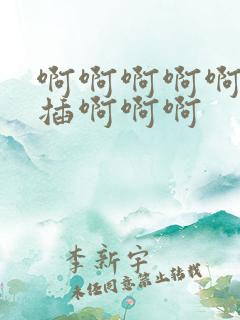 啊啊啊啊啊
插啊啊啊
李新宇
未经同意禁止转载